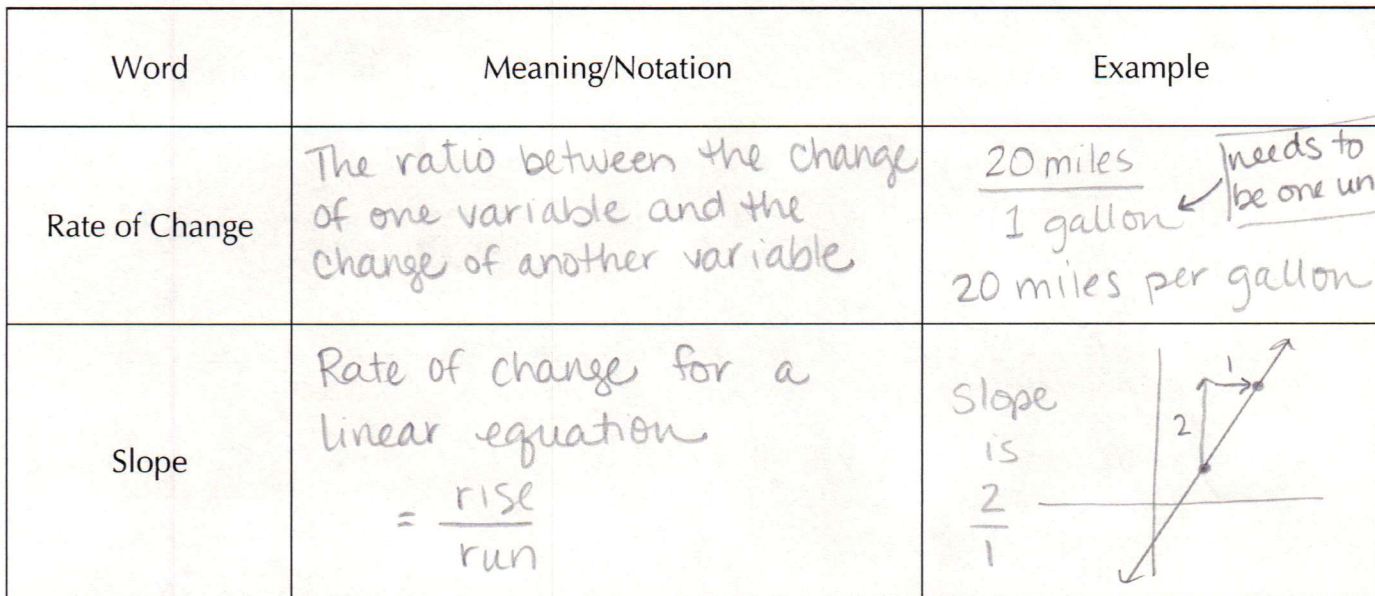 Word
Meaning/Notation
Example
Rate of Change
The ratio between the change
of one variable and the
change of another variable
20 miles
1 gallon
needs to
be one un
20 miles per gallon
Slope
Rate of change for a
linear equation
= rise
run
Slope
is
2
1
1
2